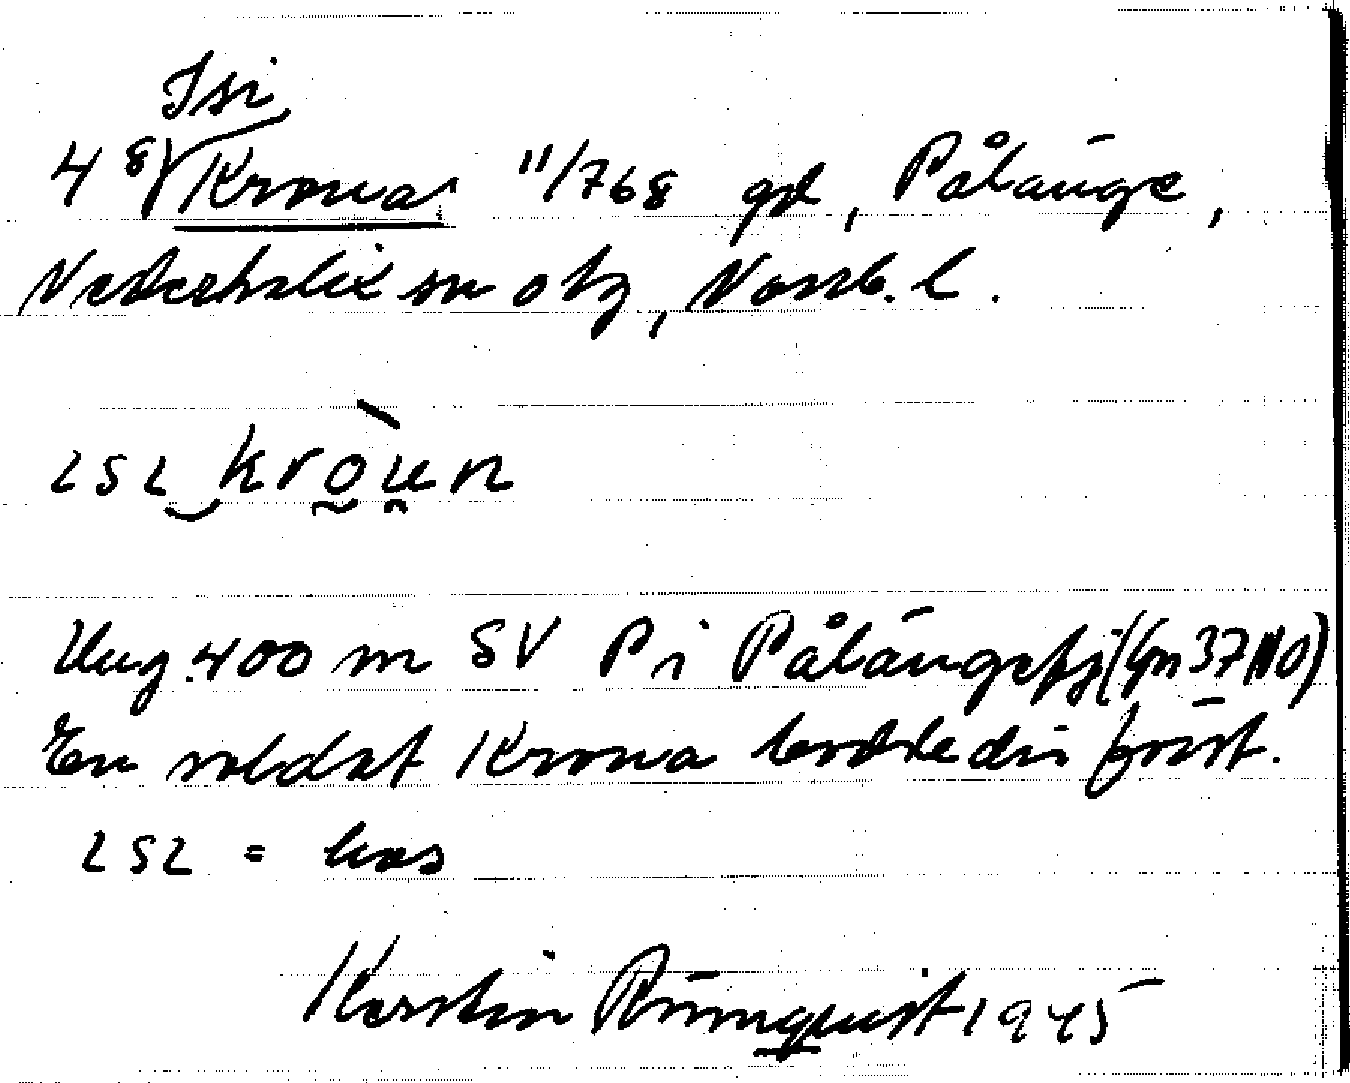 Isi
4 8) Krona 11/768 gd, Pålänge,
Nederkalix sn o tg, Norrb. l.
ısı kròu̯n
Ung. 400 m SV P i Pålängefj (Gn 37 0)
En soldat Krona bodde där först.
ısı = hos
Kerstin Rönnquist 1945